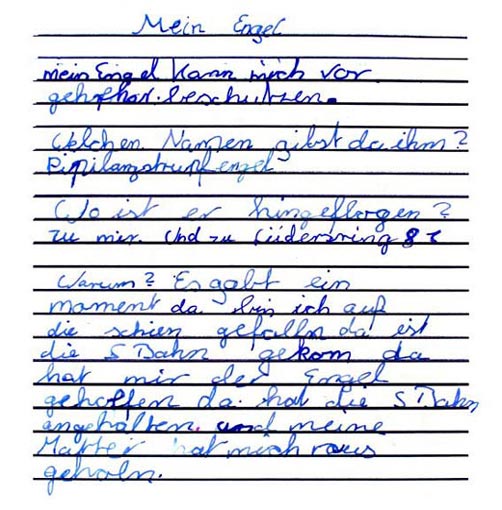 Mein Engel
mein Engel kann mich vor
beschützen.
Welchen Namen gibst du ihm?
Pipilangstrumpfengel
Wo ist er hingeflogen?
zu mir. Und zu Lüdersring
Warum? Es gabt ein
moment da bin ich auf
die schien gefalln da ist
die S Bahn gekom da
hat mir der Engel
geholfen da hat die S Bahn
angehalten und meine
Mutter hat mich raus
geholn.